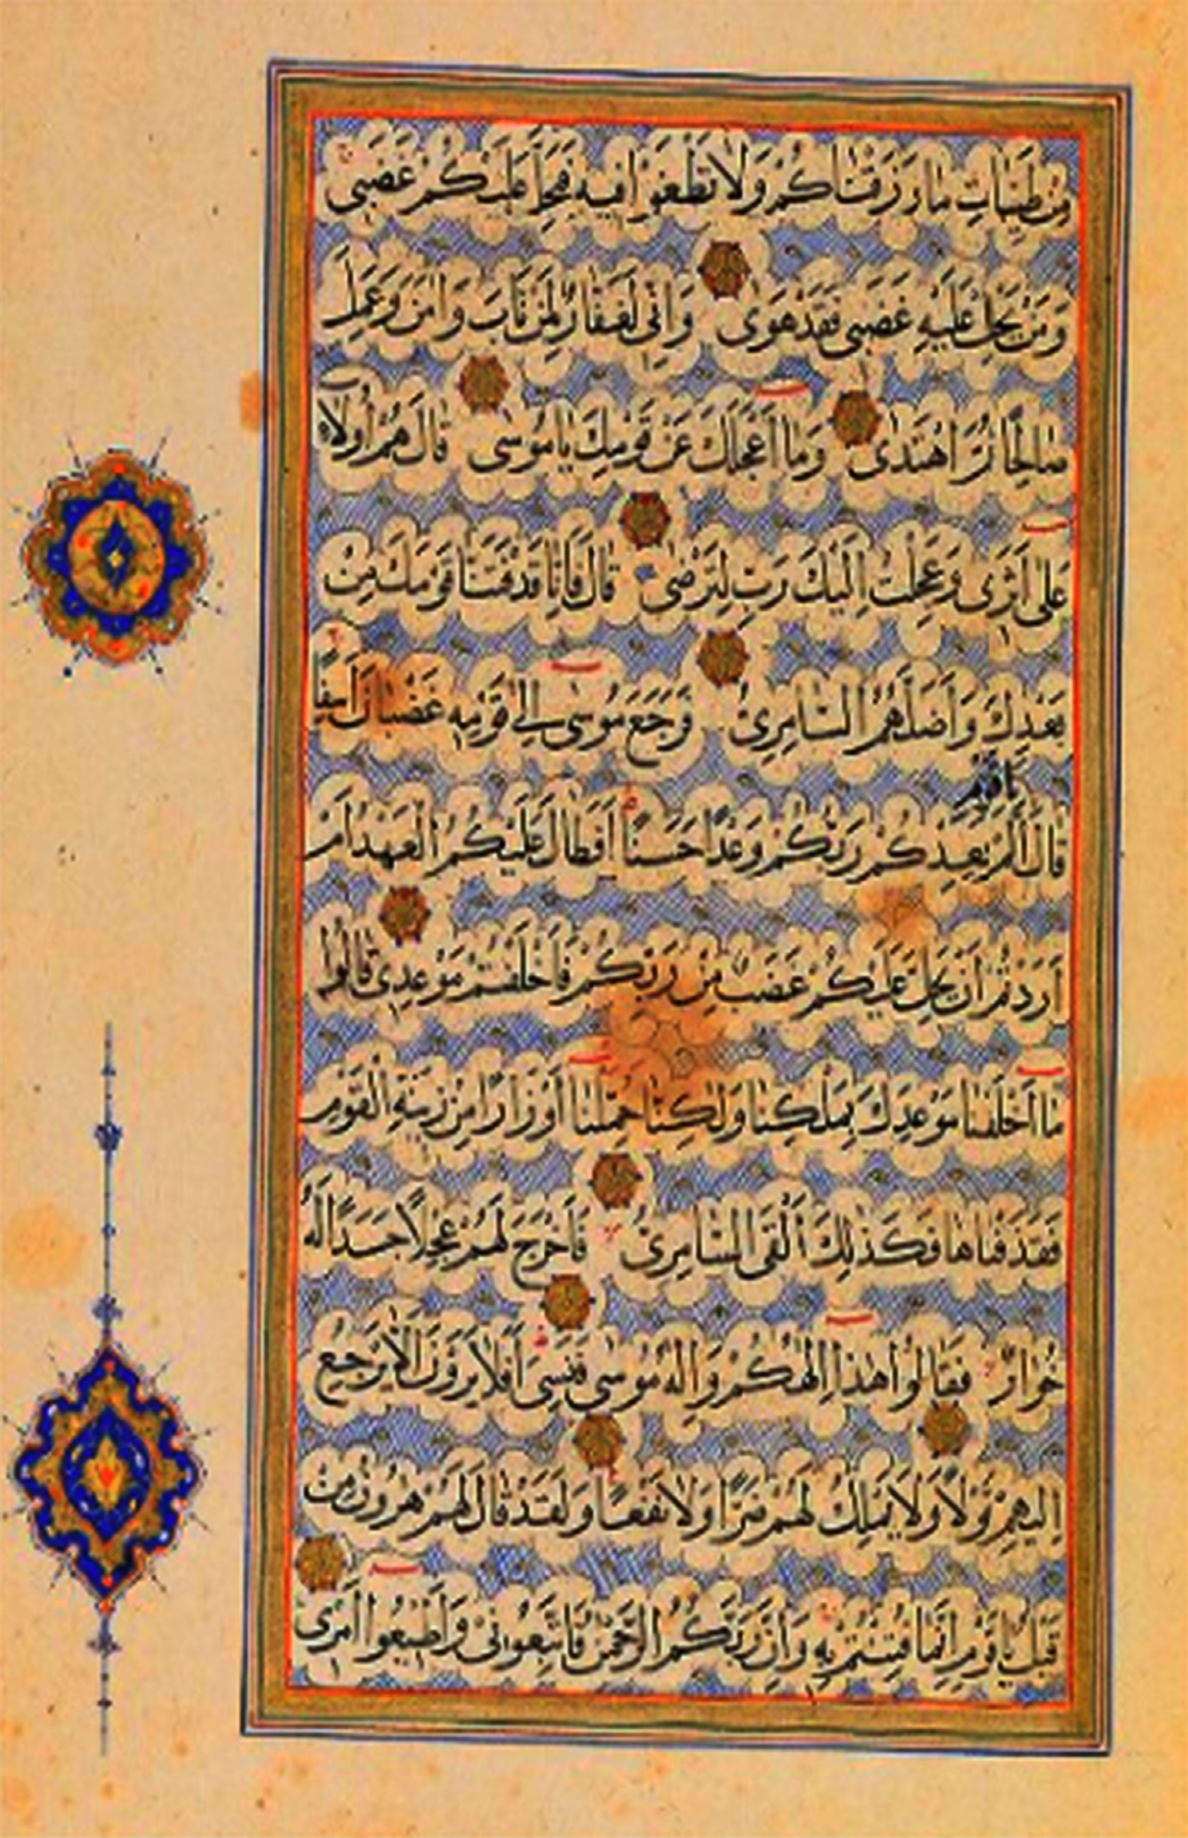 مِنْ طَيِّبَاتِ مَا رَزَقْنَاكُمْ وَلَا تَطْغَوْا فِيهِ فَيَحِلَّ عَلَيْكُمْ غَضَبِي
وَمَنْ يَحْلِلْ عَلَيْهِ غَضَبِي فَقَدْ هَوَى وَإِنِّي لَغَفَّارٌ لِمَنْ تَابَ وَآمَنَ وَعَمِلَ
صَالِحًا ثُمَّ اهْتَدَى وَمَا أَعْجَلَكَ عَنْ قَوْمِكَ يَامُوسَى قَالَ هُمْ أُولَاءِ
عَلَى أَثَرِي وَعَجِلْتُ إِلَيْكَ رَبِّ لِتَرْضَى قَالَ فَإِنَّا قَدْ فَتَنَّا قَوْمَكَ مِنْ
بَعْدِكَ وَأَضَلَّهُمُ السَّامِرِيُّ فَرَجَعَ مُوسَى إِلَى قَوْمِهِ غَضْبَانَ أَسِفًا
يَاقَوْمِ
قَالَ أَلَمْ يَعِدْكُمْ رَبُّكُمْ وَعْدًا حَسَنًا أَفَطَالَ عَلَيْكُمُ الْعَهْدُ أَمْ
أَرَدْتُمْ أَنْ يَحِلَّ عَلَيْكُمْ غَضَبٌ مِنْ رَبِّكُمْ فَأَخْلَفْتُمْ مَوْعِدِي قَالُوا
مَا أَخْلَفْنَا مَوْعِدَكَ بِمَلْكِنَا وَلَكِنَّا حُمِّلْنَا أَوْزَارًا مِنْ زِينَةِ الْقَوْمِ
فَقَذَفْنَاهَا فَكَذَلِكَ أَلْقَى السَّامِرِيُّ فَأَخْرَجَ لَهُمْ عِجْلًا جَسَدًا لَهُ
خُوَارٌ فَقَالُوا هَذَا إِلَهُكُمْ وَإِلَهُ مُوسَى فَنَسِيَ أَفَلَا يَرَوْنَ أَلَّا يَرْجِعُ
إِلَيْهِمْ قَوْلًا وَلَا يَمْلِكُ لَهُمْ ضَرًّا وَلَا نَفْعًا وَلَقَدْ قَالَ لَهُمْ هَرُونُ مِنْ
قَبْلُ يَاقَوْمِ إِنَّمَا فُتِنْتُمْ بِهِ وَإِنَّ رَبَّكُمُ الرَّحْمَنُ فَاتَّبِعُونِي وَأَطِيعُوا أَمْرِي